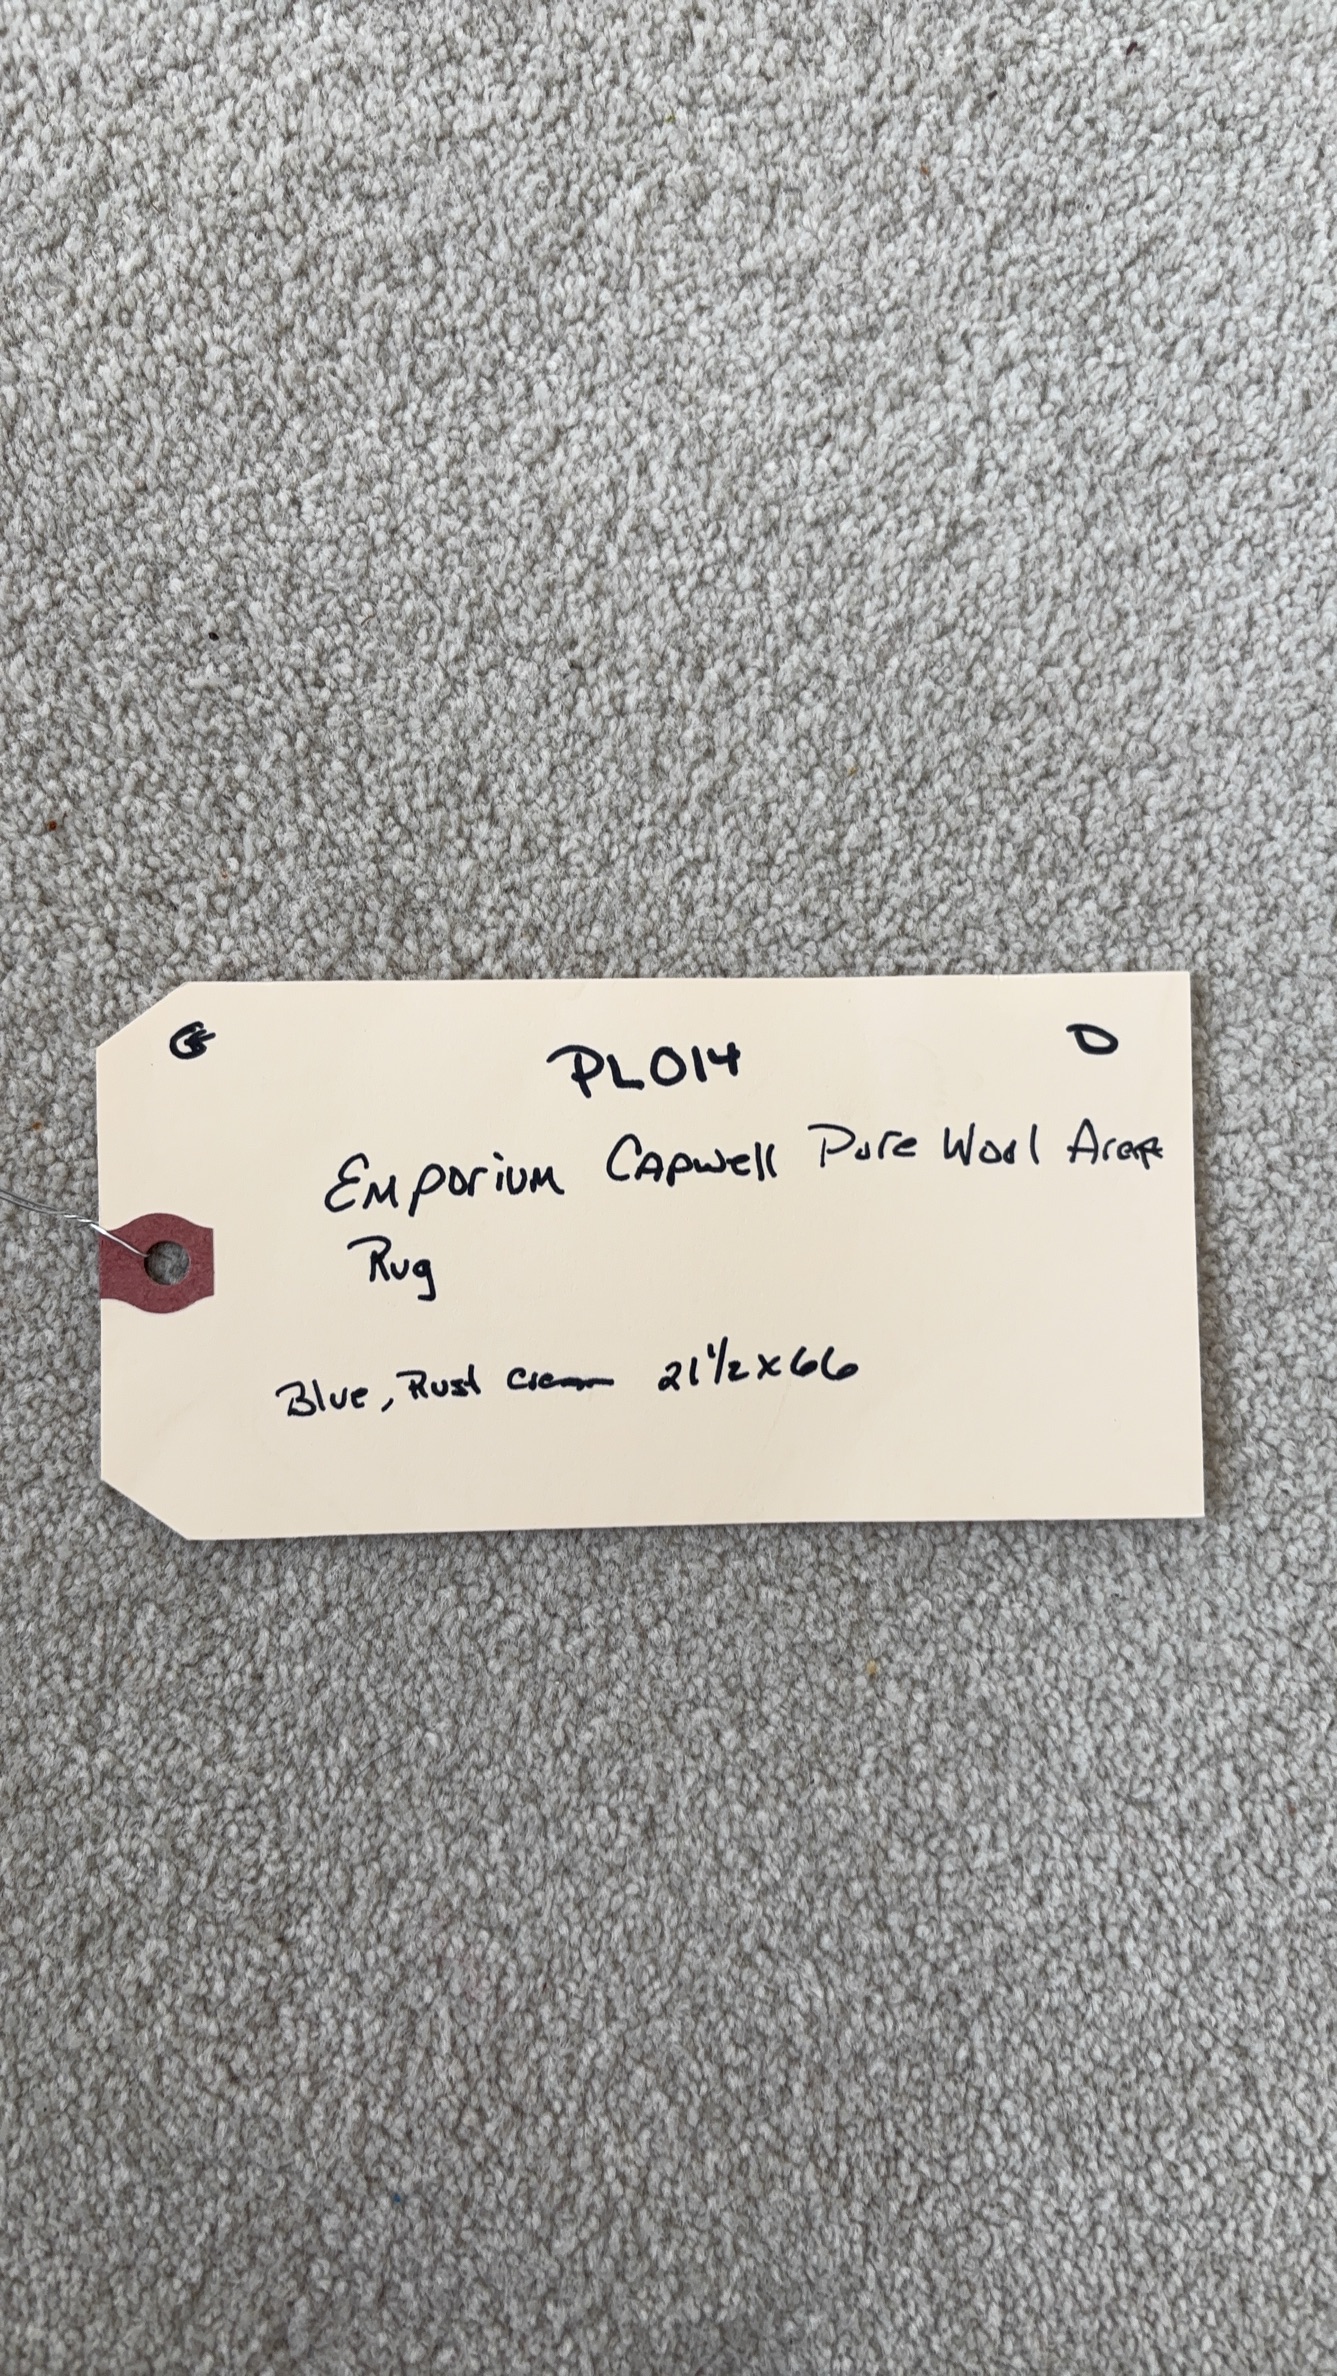 PL014 D
Emporium Capwell Pure Wool Area
Rug
Blue, Rust Cream 21 1/2 x 66